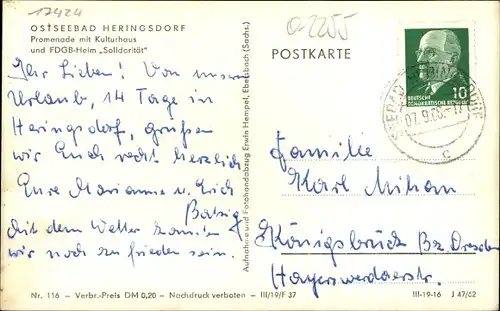 17424
OSTSEEBAD HERINGSDORF
Promenade mit Kulturhaus
und FDGB-Heim „Solidarität"
Ihr Lieben! Von unserm
Urlaub, 14 Tage in
Heringsdorf, grüßen
wir Euch recht herzlich
Eure Marianne u. Erich
Mit dem Wetter
wir noch zufrieden sein.
Aufnahme und Fotohandabzug Erwin Hempel, Ebersbach (Sachs.)
0-2255
POSTKARTE
10
DEUTSCHE
DEMOKRATISCHE REPUBLIK
c
Familie
Karl Mihan
Königsbrück Bz. Dresden
Hayerswerdaerstr.
Nr. 116 – Verbr.-Preis DM 0,20 – Nachdruck verboten – III/19/F 37
III-19-16 J 47/62